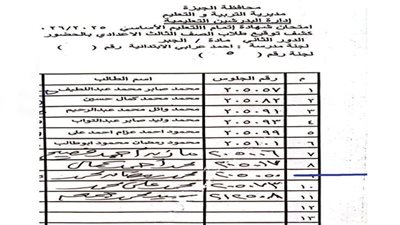 محافظة الجيزة
مديرية التربية و التعليم
إدارة البدرشين التعليمية
امتحان شهادة إتمام التعليم الأساسي ٢٠٢٦/٢٠٢٥
كشف توقيع طلاب الصف الثالث الاعدادي بالحضور
الدور الثاني. مادة / الجبر
لجنة مدرسة : احمد عرابي الابتدائية رقم ( )
لجنة رقم ( ٥ )
م رقم الجلوس اسم الطالب
١ ٢٠٥٠٥٧ محمد صابر محمد عبداللطيف
٢ ٢٠٥٠٨٢ محمد كمال حسين
٣ ٢٠٥٠٩١ محمد وائل محمد عبدالرحيم
٤ ٢٠٥٠٩٣ محمد وليد صابر عبدالتواب
٥ ٢٠٥٠٩٩ محمود احمد عزام احمد على
٦ ٢٠٥١٠٦ محمود رمضان محمود ابوطالب
٧ احمد
٨ محمد احمد
٩ محمد رمضان محمد
١٠ ٢٠٥٠٧٣ محمد على محمد
١١ ٢١٢٥٠٨ محمد
١٢
١٣